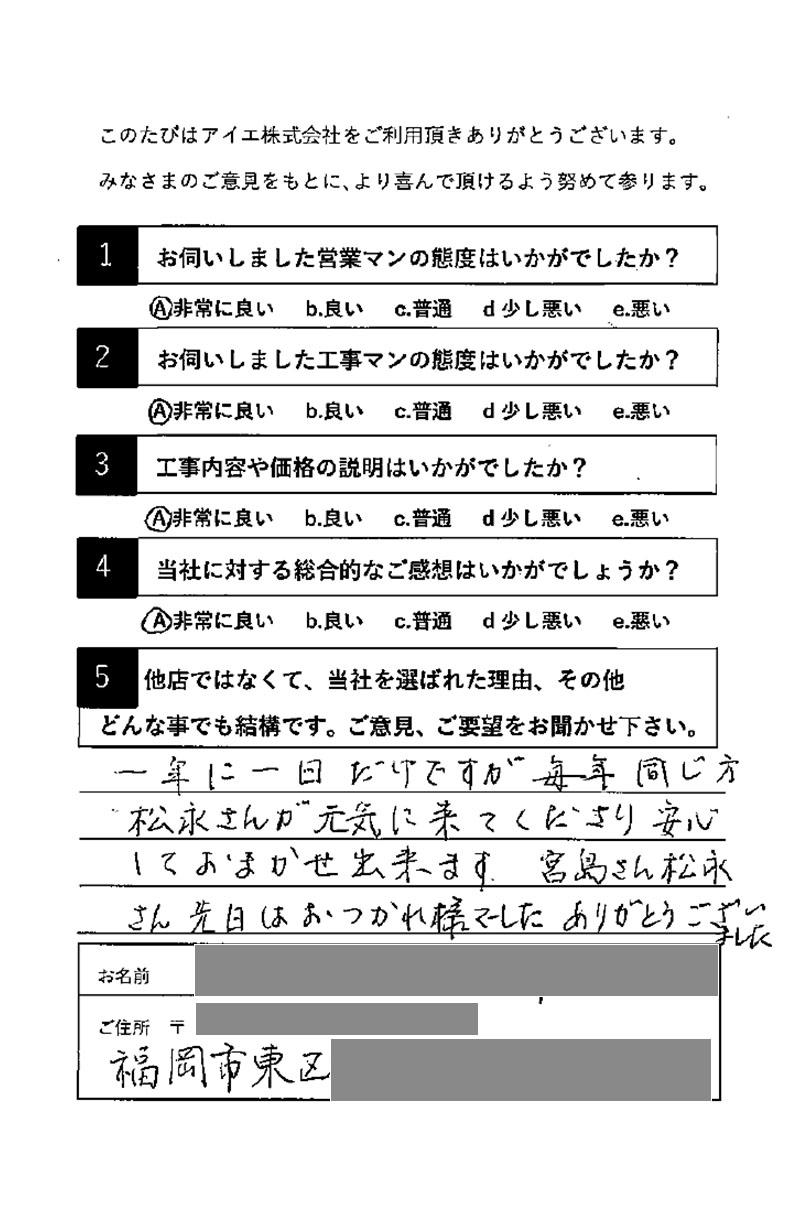 このたびはアイエ株式会社をご利用頂きありがとうございます。
みなさまのご意見をもとに、より喜んで頂けるよう努めて参ります。
1 お伺いしました営業マンの態度はいかがでしたか？
Ⓐ非常に良い b.良い c.普通 d 少し悪い e.悪い
2 お伺いしました工事マンの態度はいかがでしたか？
Ⓐ非常に良い b.良い c.普通 d 少し悪い e.悪い
3 工事内容や価格の説明はいかがでしたか？
Ⓐ非常に良い b.良い c.普通 d 少し悪い e.悪い
4 当社に対する総合的なご感想はいかがでしょうか？
Ⓐ非常に良い b.良い c.普通 d 少し悪い e.悪い
5 他店ではなくて、当社を選ばれた理由、その他
どんな事でも結構です。ご意見、ご要望をお聞かせ下さい。
一年に一日だけですが毎年同じ方
松永さんが元気に来てくださり安心
しておまかせ出来ます。宮島さん松永
さん先日はおつかれ様でした ありがとうござい
ました
お名前
ご住所 〒
福岡市東区